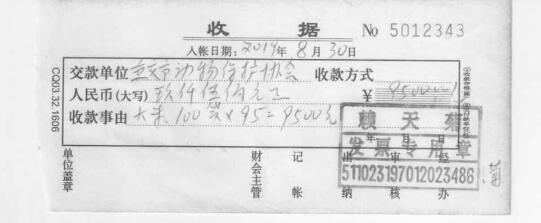 收 据 No 5012343
入帐日期: 2019年 8月 30日
交款单位 动物保护协会 收款方式
人民币(大写) 玖仟伍佰元正 ¥ 9500
收款事由 大米 100袋×95=9500元
年 月 日
赖天
发票专用章
511023197012023486
单位盖章 财会主管 记帐 出纳 审核 经办
CQ03.32.1606